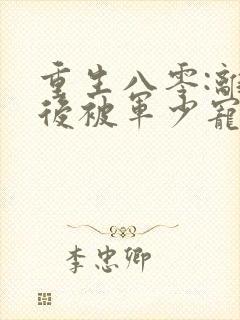 重生八零:離
後被軍少寵
李忠卿